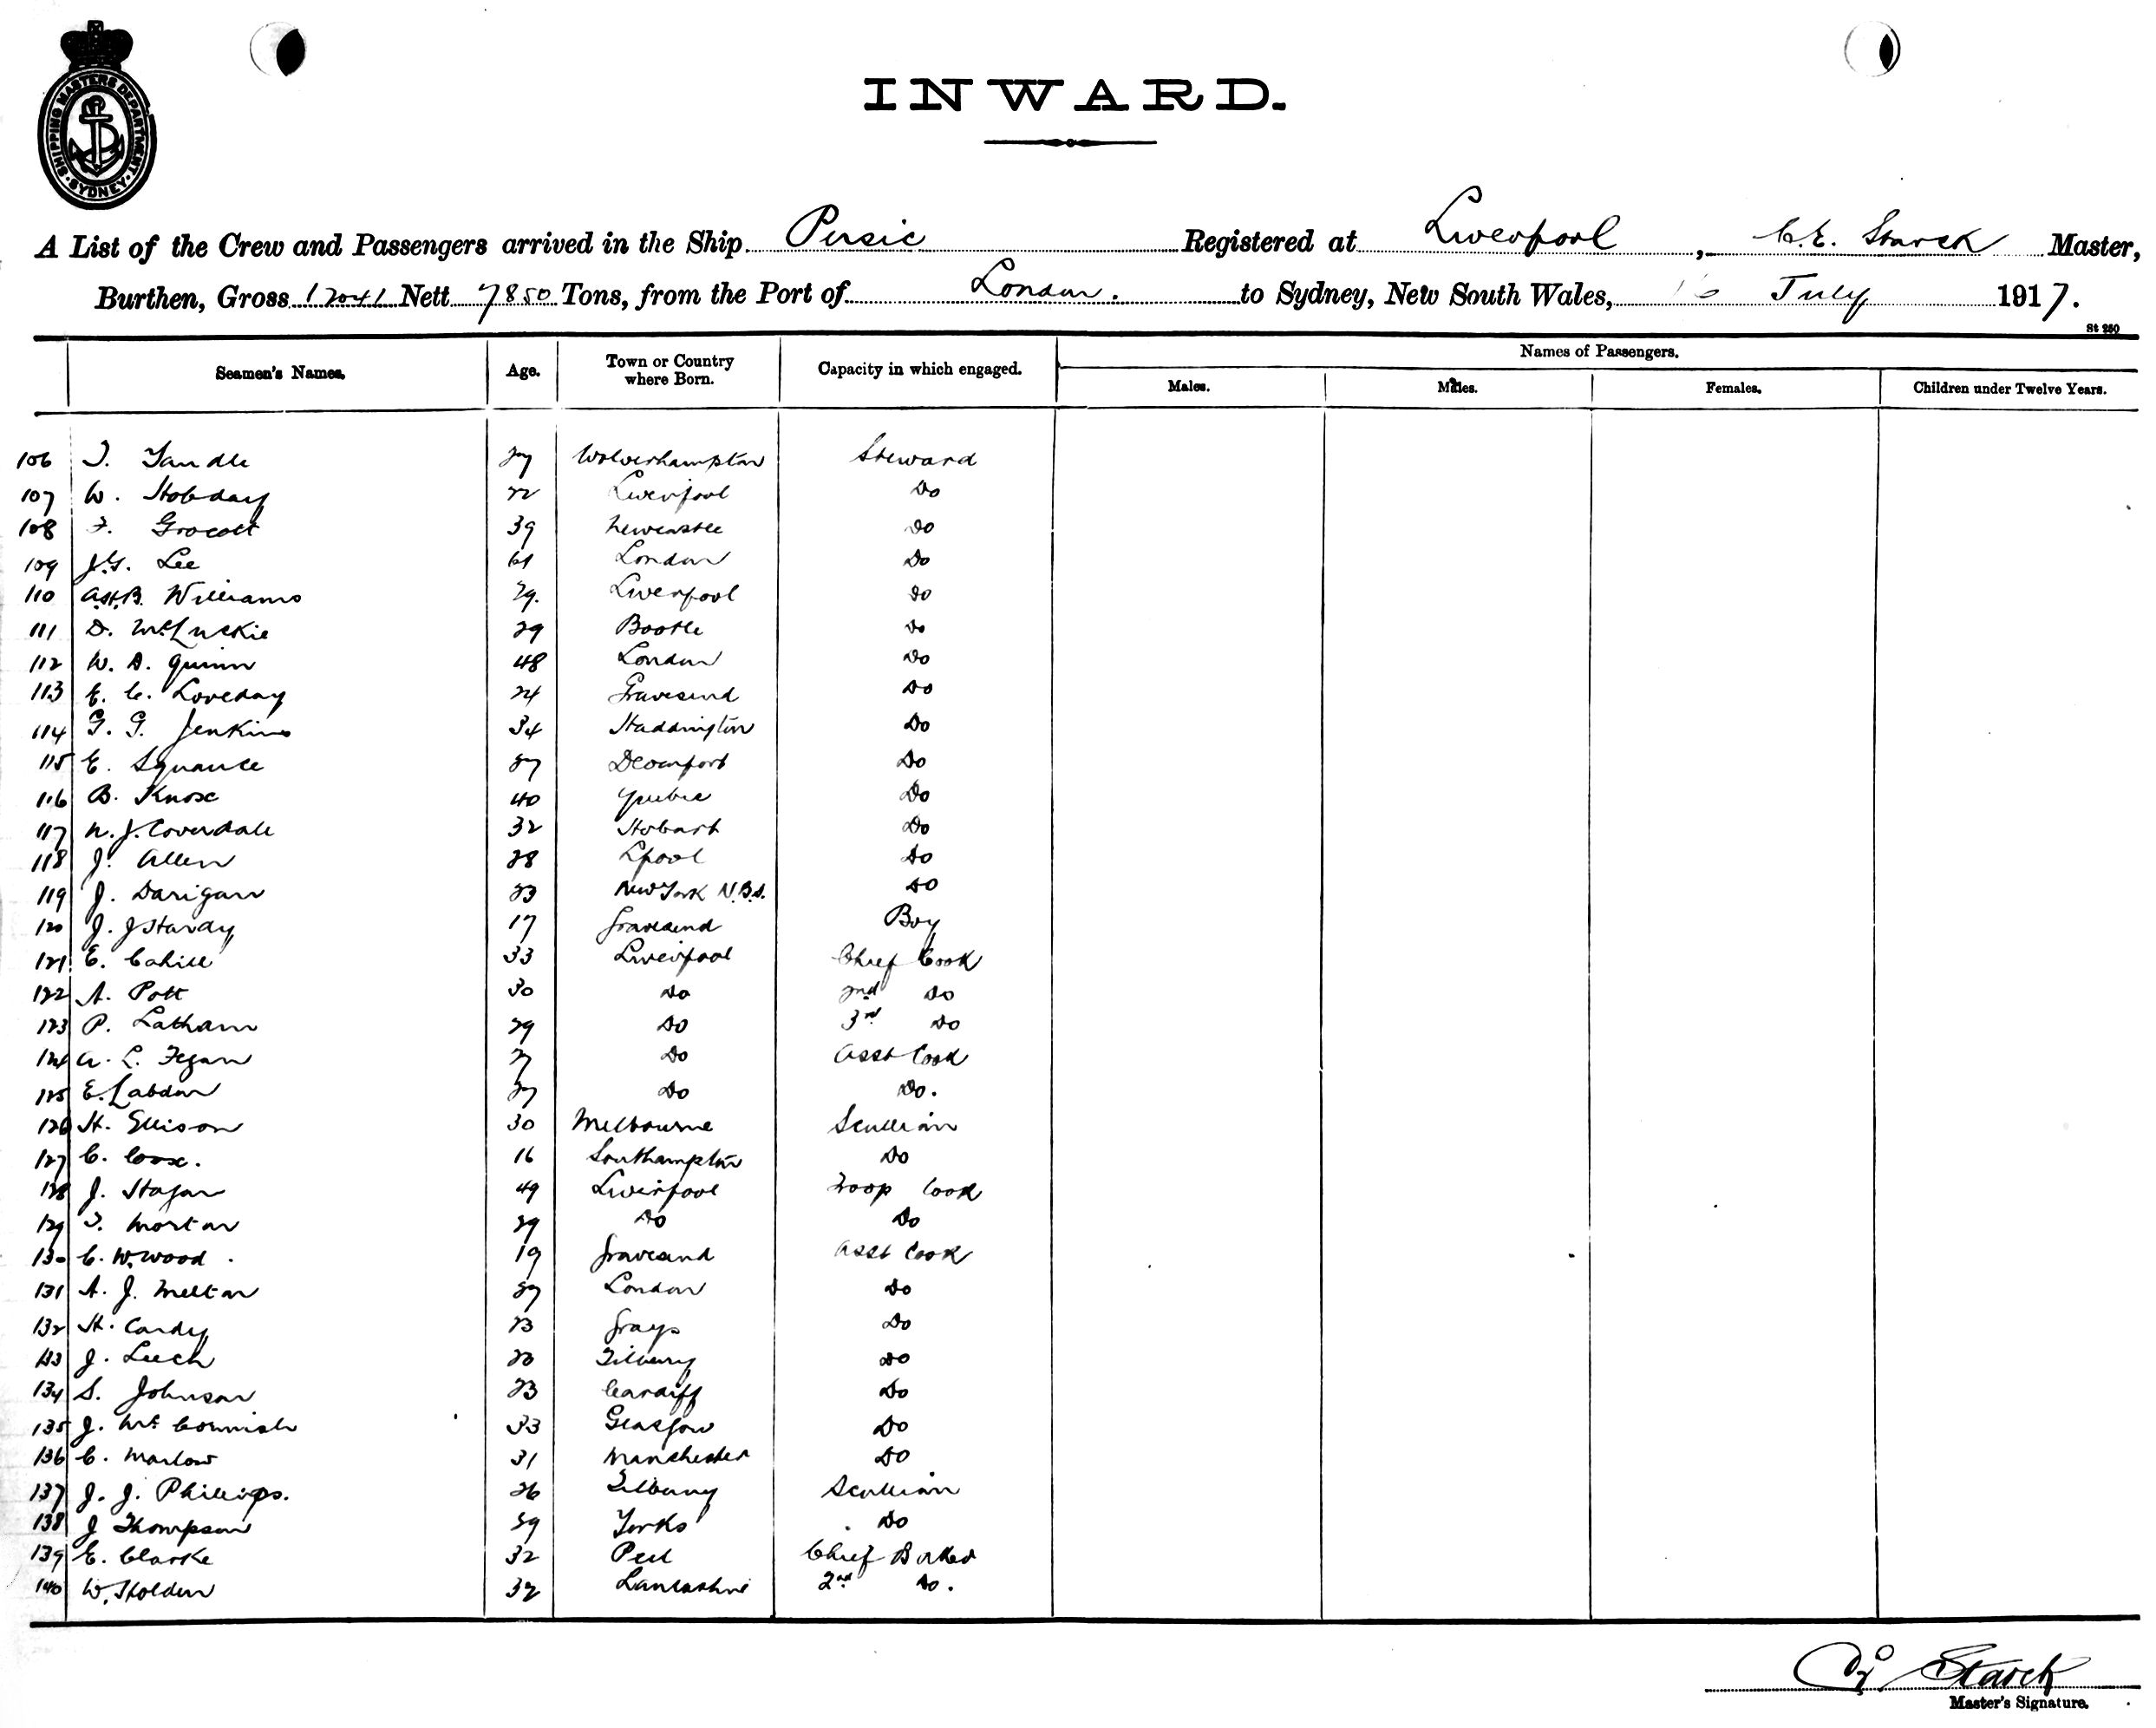 SHIPPING MASTERS DEPARTMENT. SYDNEY.
INWARD.
A List of the Crew and Passengers arrived in the Ship Persic Registered at Liverpool, C.E. Starck Master,
Burthen, Gross 12041 Nett 7850 Tons, from the Port of London. to Sydney, New South Wales, 16 July 1917.
St 250
Seamen's Names. Age. Town or Country where Born. Capacity in which engaged. Names of Passengers.
Males. Males. Females. Children under Twelve Years.
106 T. Tandle 27 Wolverhampton Steward
107 W. Hobday 22 Liverpool Do
108 F. Grocott 39 Newcastle Do
109 J.G. Lee 61 London Do
110 Williams 29. Liverpool Do
111 D. McLuckie 29 Bootle Do
112 W. A. Quinn 48 London Do
113 E. C. Loveday 24 Gravesend Do
114 G. G. Jenkins 34 Haddington Do
115 E. Squance 27 Devonport Do
116 B. Knox 40 Quebec Do
117 N. J. Coverdale 32 Hobart Do
118 J. Allen 28 Lpool Do
119 J. Darigan 23 New York Do
120 J. J Hardy 17 Gravesend Boy
121 E. Cahill 33 Liverpool Chief Cook
122 A. Pott 30 Do 2nd Do
123 P. Latham 29 Do 3rd Do
124 A. L. Fegan 27 Do Asst Cook
125 E. Labdon 27 Do Do.
126 H. Ellison 30 Melbourne Scullian
127 C. Coox. 16 Southampton Do
128 J. Hagan 49 Liverpool Troop Cook
129 T. Morton 29 Do Do
130 C. W. Wood. 19 Gravesend Asst Cook
131 A. J. Melton 27 London Do
132 H. Cardy 23 Grays Do
133 J. Leech 20 Tilbury Do
134 S. Johnson 23 Cardiff Do
135 J. Mc Cormish 33 Glasgow Do
136 C. Marlow 31 Manchester Do
137 J. J. Phillips. 26 Tilbury Scullian
138 J Thompson 29 Yorks Do
139 E. Clarke 32 Peel Chief Baker
140 W. Holden 32 Lancashire 2nd Do.
Starck
Master's Signature.